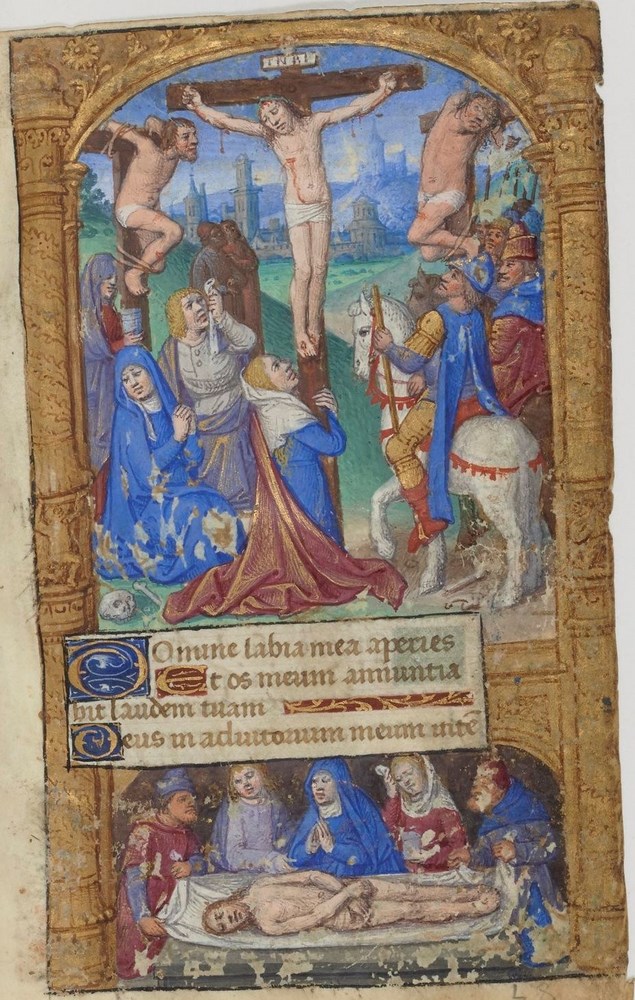 INRI
Domine labia mea aperies
Et os meum annuntia
bit laudem tuam
Deus in adiutorium meum inte